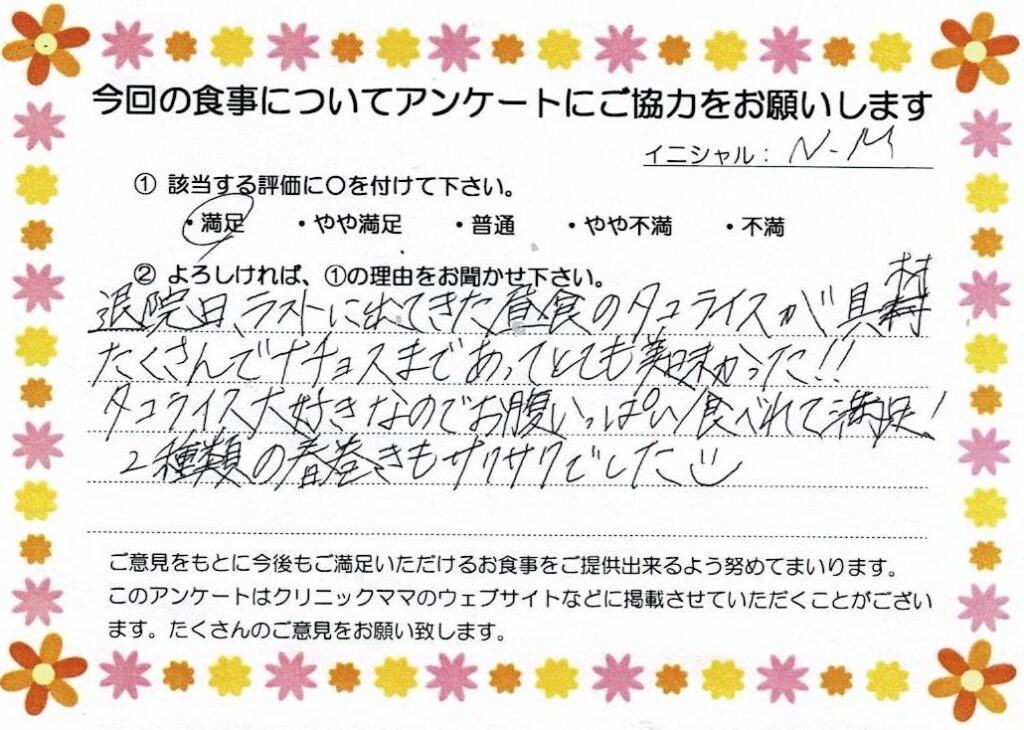 今回の食事についてアンケートにご協力をお願いします
イニシャル： N-M
① 該当する評価に○を付けて下さい。
・満足 ・やや満足 ・普通 ・やや不満 ・不満
② よろしければ、①の理由をお聞かせ下さい。
退院日、ラストに出てきた昼食のタコライスが具材
たくさんでナチョスまであってとても美味かった!!
タコライス大好きなのでお腹いっぱい食べれて満足!
2種類の春巻きもサクサクでした
ご意見をもとに今後もご満足いただけるお食事をご提供出来るよう努めてまいります。
このアンケートはクリニックママのウェブサイトなどに掲載させていただくことがござい
ます。たくさんのご意見をお願い致します。